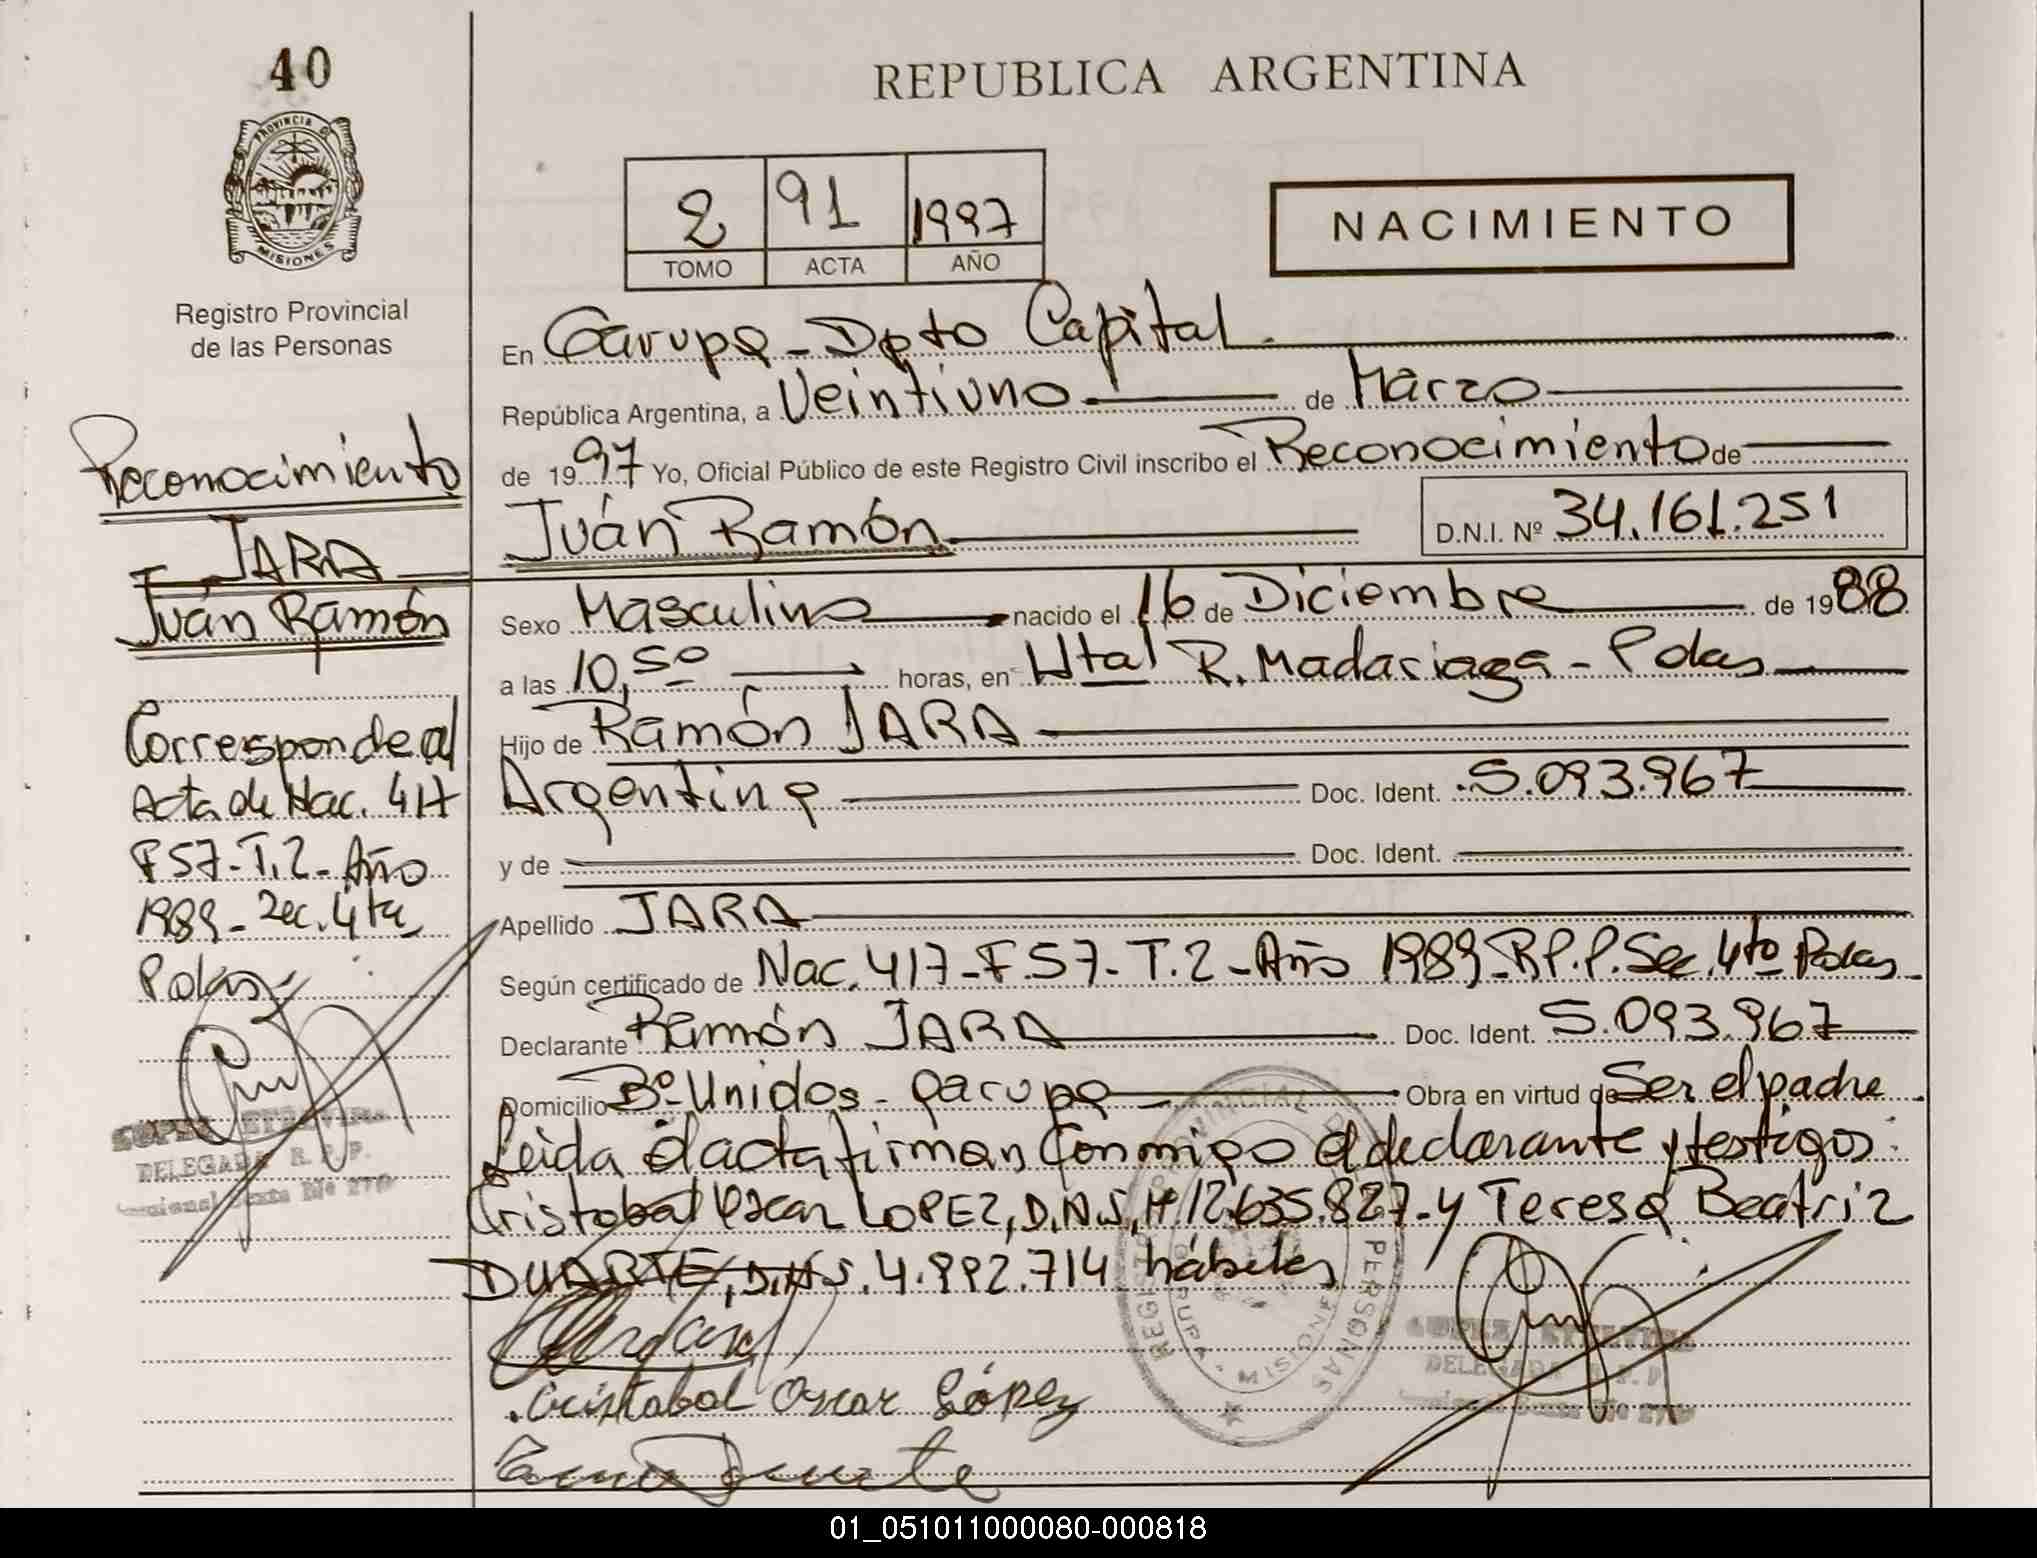 40
REPUBLICA ARGENTINA
PROVINCIA DE
MISIONES
Registro Provincial
de las Personas
2 91 1997
TOMO ACTA AÑO
NACIMIENTO
En Garupa - Dpto Capital.
República Argentina, a Veintiuno de Marzo
de 1997 Yo, Oficial Público de este Registro Civil inscribo el Reconocimiento de
Juán Ramón D.N.I. Nº 34.161.251
Sexo Masculino nacido el 16 de Diciembre de 1988
a las 10,50 horas, en Htal R. Madariaga - Pdas
Hijo de Ramón JARA
Argentina Doc. Ident. 5.093.967
y de Doc. Ident.
Apellido JARA
Según certificado de Nac. 417-F.57-T.2-Año 1989-R.P.P. Sec. 4ta Pdas
Declarante Ramón JARA Doc. Ident. 5.093.967
Domicilio Bº Unidos - Garupa Obra en virtud de Ser el padre
Leida el acta firman Conmigo el declarante y testigos:
Cristobal Oscar LOPEZ, D.N.I. M. 12.635.827-y Teresa Beatriz
DUARTE, D.N.I. 4.992.714 hábiles
Cristobal Oscar López
Duarte
Reconocimiento
JARA
Juán Ramón
Corresponde al
Acta de Nac. 417
F57-T.2-Año
1989-Sec. 4ta
Pdas
DELEGADA R.P.P.
REGISTRO PROVINCIAL DE LAS PERSONAS
GARUPA - MISIONES
DELEGADA R.P.P.
01_051011000080-000818